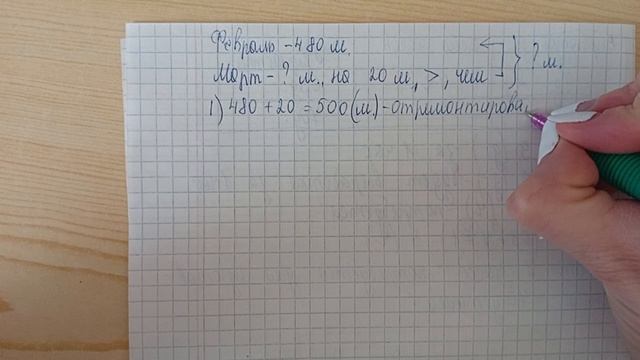 Февраль - 480 м.
Март - ? м., на 20 м., >, чем } ? м.
1) 480 + 20 = 500 (м.) - отремонтирова